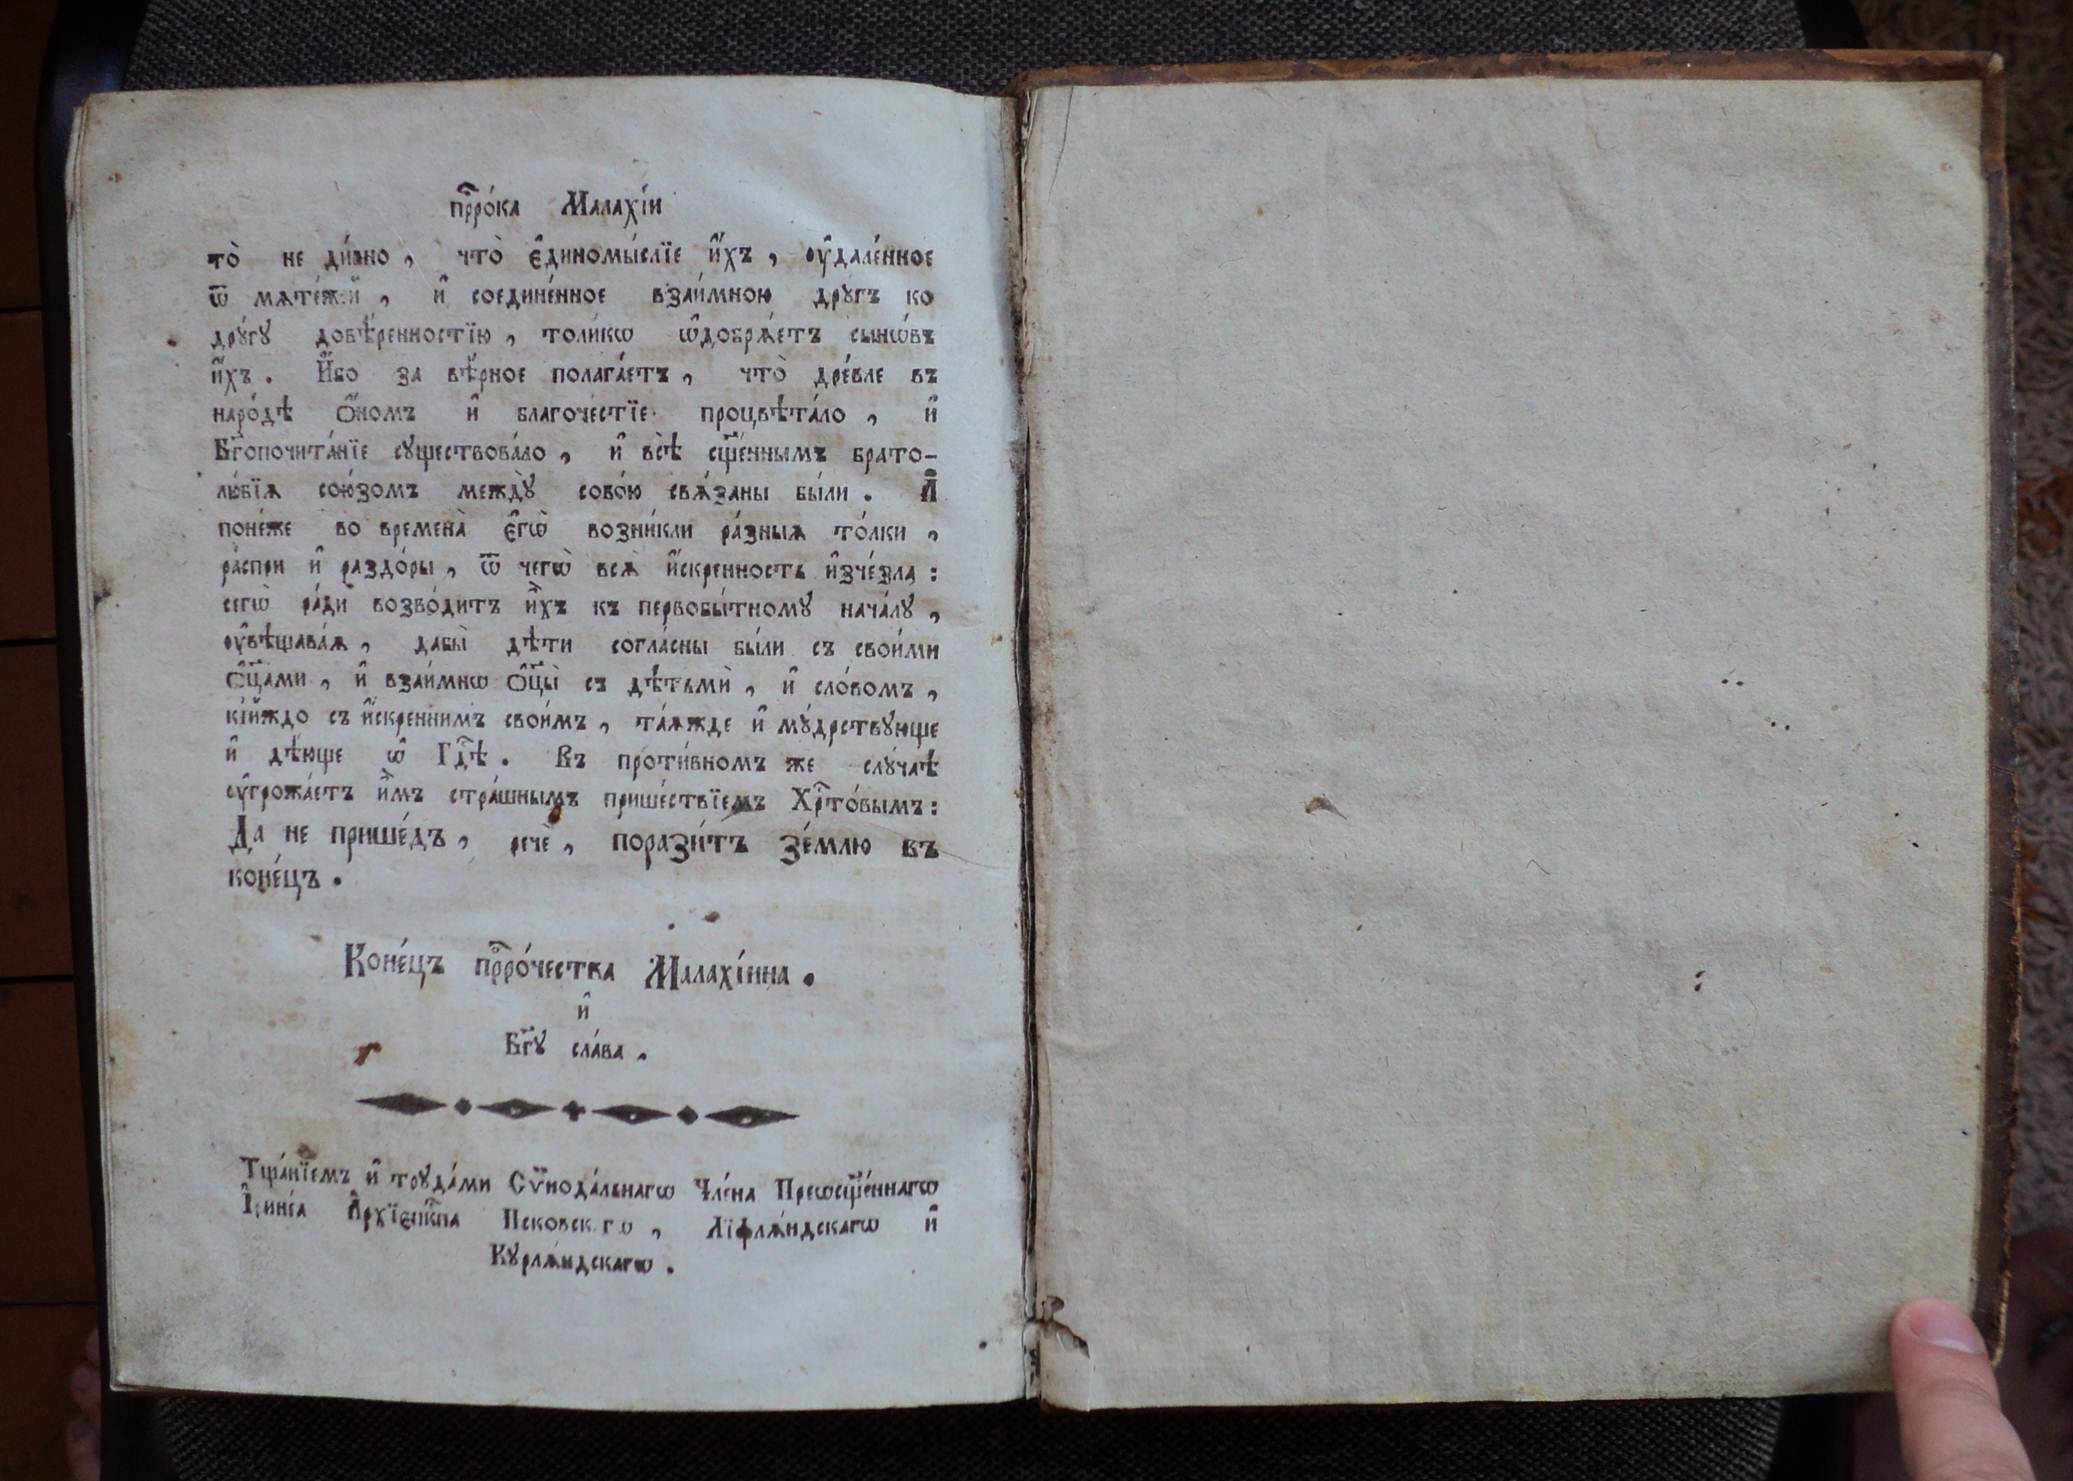 прⷪ҇ро́ка Малахі́и
то̀ не ди́вно , что̀ є҆диномы́слїе и҆́хъ , ᲂу҆дале́нное
ѿ мѧте́жей , и҆ соедине́нное взаи́мною дрꙋ́гъ ко
дрꙋ́гꙋ довѣ́ренностїю , толи́кѡ ѡ҆добрѧ́етъ сынѡ́въ
и҆́хъ . И҆́бо за вѣ́рное полага́етъ , что̀ дре́вле въ
наро́дѣ ѻ҆́номъ и҆ благоче́стїе процвѣта́ло , и҆
Бг҃опочита́нїе сꙋществова́ло , и҆ всѣ̀ сщ҃е́ннымъ брато-
лю́бїѧ сою́зомъ междꙋ̀ собо́ю свѧ́заны бы́ли . А҆
поне́же во времена̀ є҆гѡ̀ возни́кли ра́зныѧ то́лки ,
ра́спри и҆ раздо́ры , ѿ чегѡ̀ всѧ̀ и҆́скренность и҆зче́зла :
сегѡ̀ ра́ди возво́дитъ и҆́хъ къ первобы́тномꙋ нача́лꙋ ,
ᲂу҆вѣщава́ѧ , дабы̀ дѣ́ти согла́сны бы́ли съ свои́ми
ѻ҆ц҃ами , и҆ взаи́мнѡ ѻ҆ц҃ы̀ съ дѣтьмѝ , и҆ сло́вомъ ,
кі́йждо съ и҆́скреннимъ свои́мъ , та́ѧжде и҆ мꙋ́дрствꙋюще
и҆ дѣ́юще ѡ҆ Гдⷭ҇ѣ . Въ проти́вномъ же слꙋ́чаѣ
ᲂу҆грожа́етъ и҆̀мъ стра́шнымъ прише́ствїемъ Хрⷭ҇то́вымъ :
Да не прише́дъ , речѐ , порази́тъ зе́млю въ
коне́цъ .
Коне́цъ прⷪ҇ро́чества Малахі́ина .
и҆
Бг҃ꙋ сла́ва .
Тща́нїемъ и҆ трꙋда́ми Сѵ҆нода́льнагѡ Чле́на Преѡсщ҃е́ннагѡ
І҆рине́а А҆рхїепⷭ҇кпа Псковскагѡ , Лїфлѧ́ндскагѡ и҆
Кꙋрлѧ́ндскагѡ .